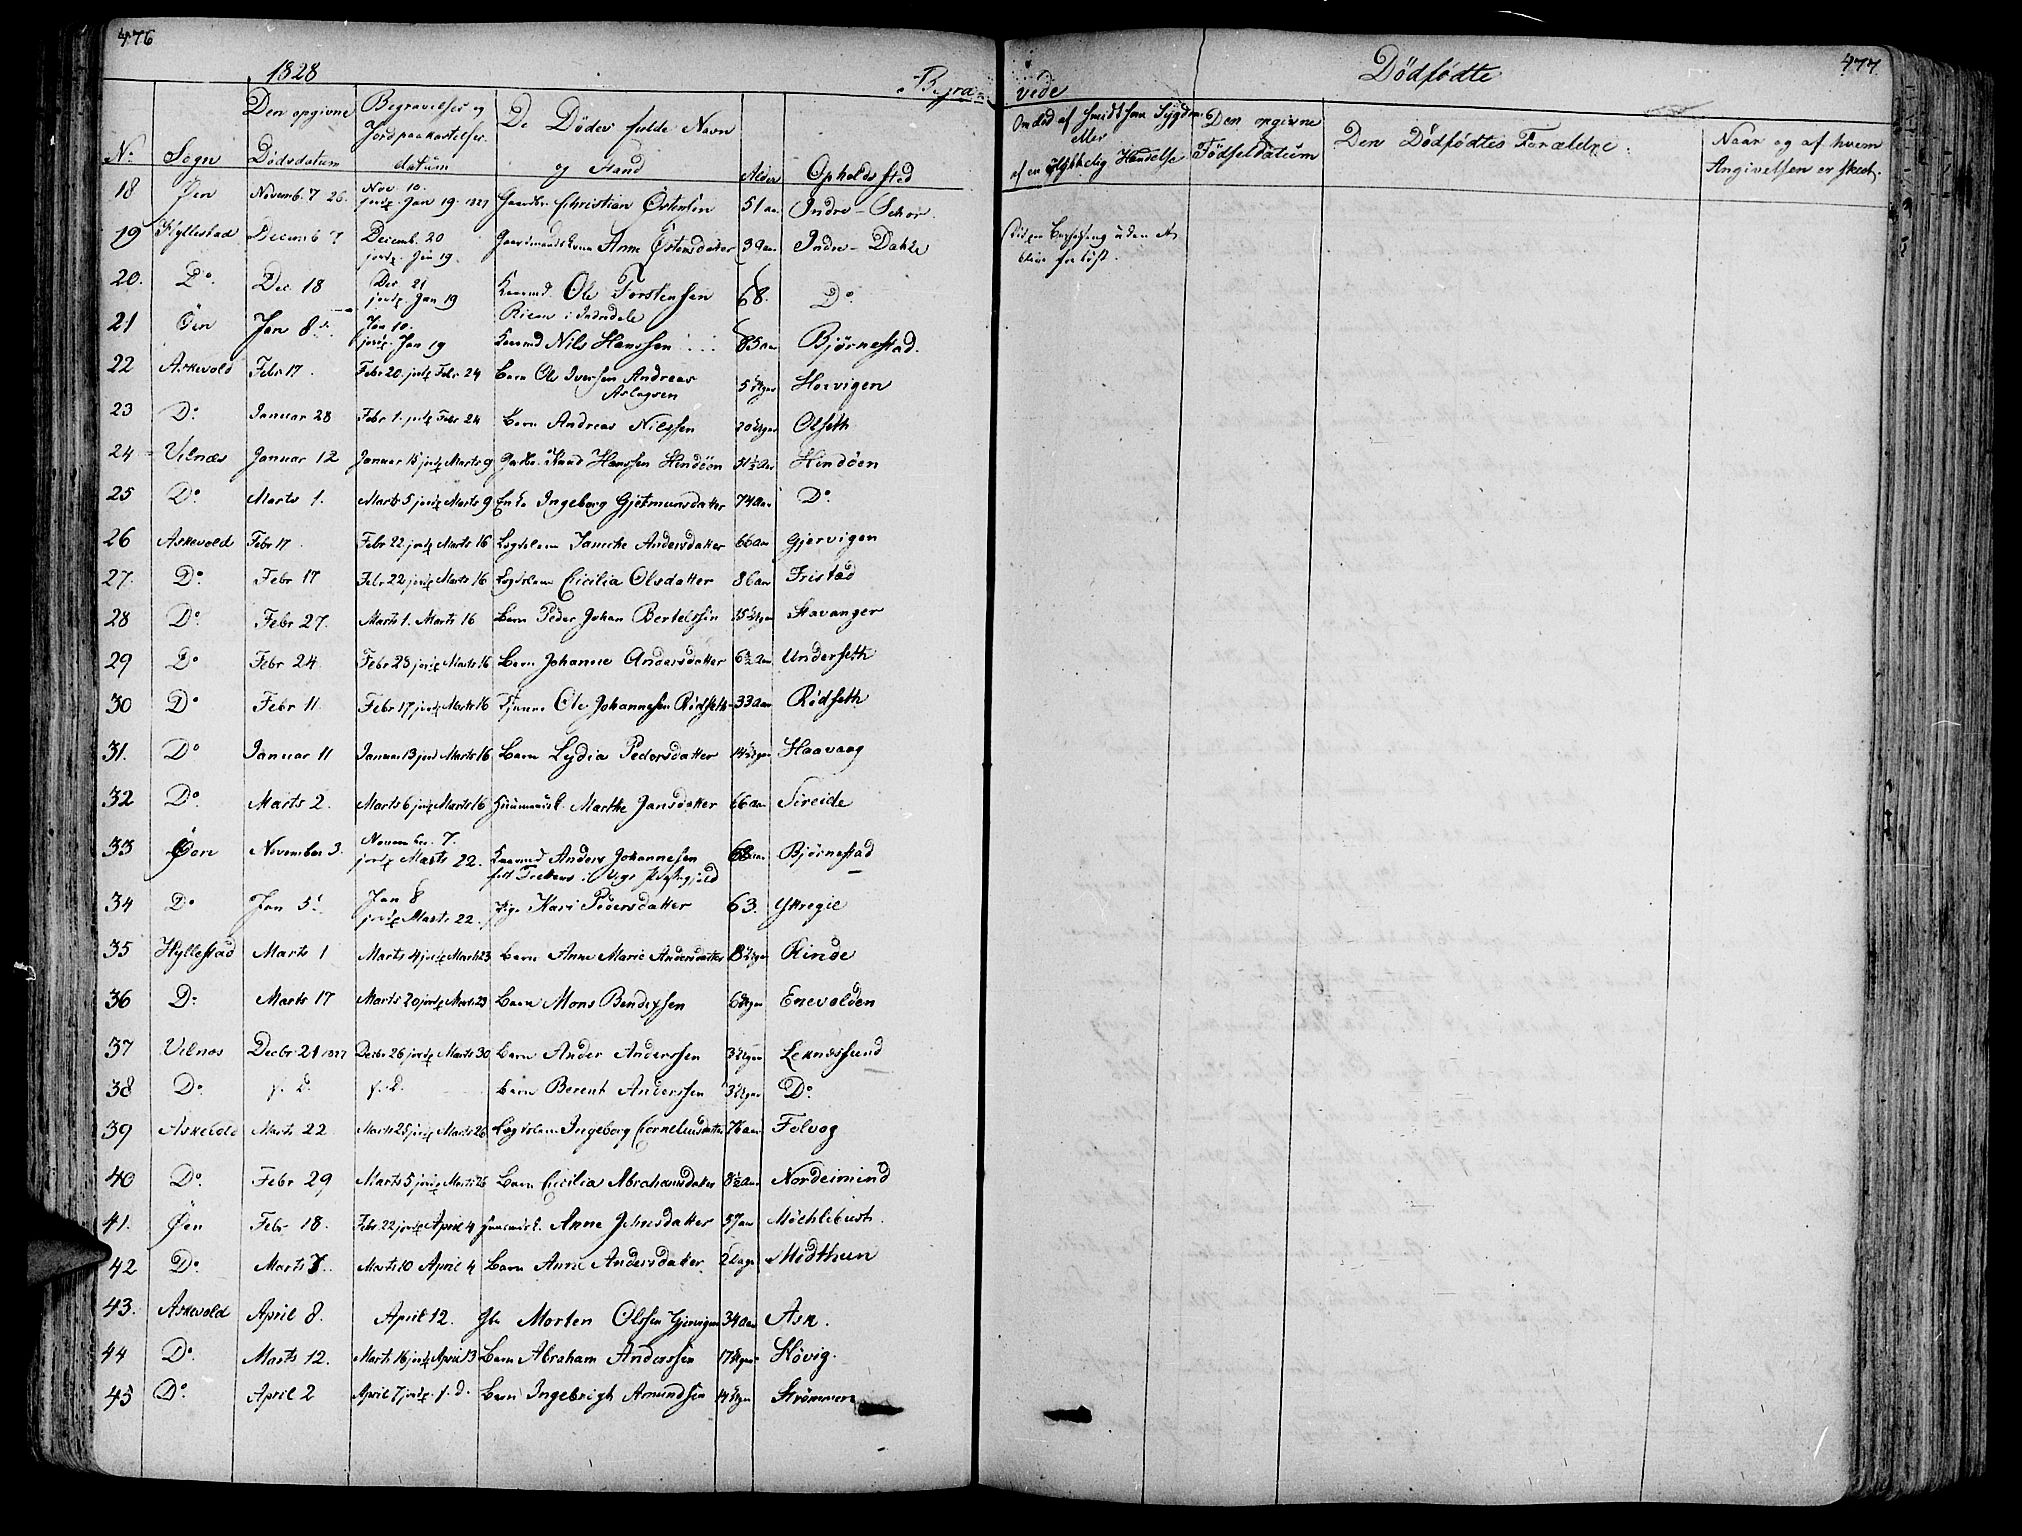 476
1828
Begra
No. Sogn Den opgivne Dødsdatum Begravelses og Jordpaakastelses datum De Dødes fulde Navn og Stand Alder Opholdssted
18 Øen Novemb. 7 26. Nov 10. jordf. Jan 19. 1827 Christian Östenson 51 aar Indre-
19 Hyllestad Decemb 7 Decemb. 20 jordf. Jan 19. Anne Östensdatter 39 aar Indre-Dahle
20. Do. Dec 18 Dec. 21 jordf. Jan 19 Ole Torstensen 68. Do.
21 Öen Jan 8. Jan 10. jordf. Jan 19 Nils Hanssen 85 aar Bjørnestad.
22 Askevold Febr 17. Febr 20. jordf Febr 24 Barn Ole Iversen Andreas Aslagsen 5 Uger Horvigen
23 Do. Januar 28 Febr 1. jordf Febr 24 Barn Andreas Nilssen 20 Uger Olseth
24 Vilnæs Januar 12 Januar 15 jordf Marts 9 Knud Hanssen Hindöen 51½ aar Hindöen
25 Do. Marts 1. Marts 5 jordf Marts 9 Enke Ingeborg Gjetmunsdatter 74 aar Do.
26 Askevold Febr 17. Febr 22 jordf Marts 16 Lægdslem Janniche Andersdatter 66 aar Gjervigen
27. Do. Febr 17 Febr 22 jordf Marts 16 Lægdslem Cicilia Olsdatter 86 aar Fristad
28 Do. Febr 27. Marts 1. Marts 16 Barn Peder Johan Bertelssen 15 Uger Stavanger
29 Do Febr 24 Febr 25 jordf Marts 16 Barn Johanne Andersdatter 6½ aar Underseth
30 Do Febr 11 Febr 17 jordf Marts 16 Ole Johannesen Rødseth 33 aar Rødseth
31. Do Januar 11 Januar 13 jord Marts 16 Barn Lydia Pedersdatter 14 Uger Haavaag
32 Do. Marts 2. Marts 6 jordf Marts 16 Marthe Jansdatter 66 aar Sireide
33 Öen November 3. November. 7. jordf Marts 22. Anders Johannesen 68 aar Bjørnestad
34 Do Jan 5. Jan 8 jordf Marts 22. Pige Kari Pedersdatter 63. Yttregie
35 Hyllestad Marts 1 Marts 4 jordf Marts 23 Barn Anne Marie Andersdatter 8 Uger Rinde
36 Do. Marts 17 Marts 20 jordf Marts 23 Barn Mons Bendixsen 6 Uger Enevolden
37 Vilnæs Decbr 21 1827 Decbr 26 jordf Marts 30 Barn Ander Anderssen 3 Uger Leknessund
38 Do. f. d. f. d. Barn Berent Anderssen 3 Uger Do.
39 Askevold Marts 22. Marts 25 jordf Marts 26 Lægdslem Ingeborg Corneliusdatter 76 aar Folvag
40 Do. Febr 29 Marts 5 jordf Marts 26 Barn Cicilia Abrahamsdatter 8½ aar Nordeimind
41. Øen Febr 18. Febr 22 jordf April 4 Anne Johnsdatter 57 aar Møchlebust.
42 Do. Marts 7. Marts 10 April 4 Barn Anne Andersdatter 2 Dage Midthun
43. Askevold April 8. April 12. Morten Olssen Gjervigen 34 aar Ask.
44 Do. Marts 12. Marts 16 jordf April 13 Barn Abraham Anderssen 17 Uger Høvig.
45 Do. April 2 April 7 jordf. f. d. Barn Ingebrigh Amundsen 14 Uger Strømmen
477
vede
Dødfødte
Om død af Sygdom eller af en ulykkelig Hændelse Den opgivne Fødselsdatum Den Dødfødtes Forældre. Naar og af hvem Angivelsen er skeet.
uden at blive forløst.